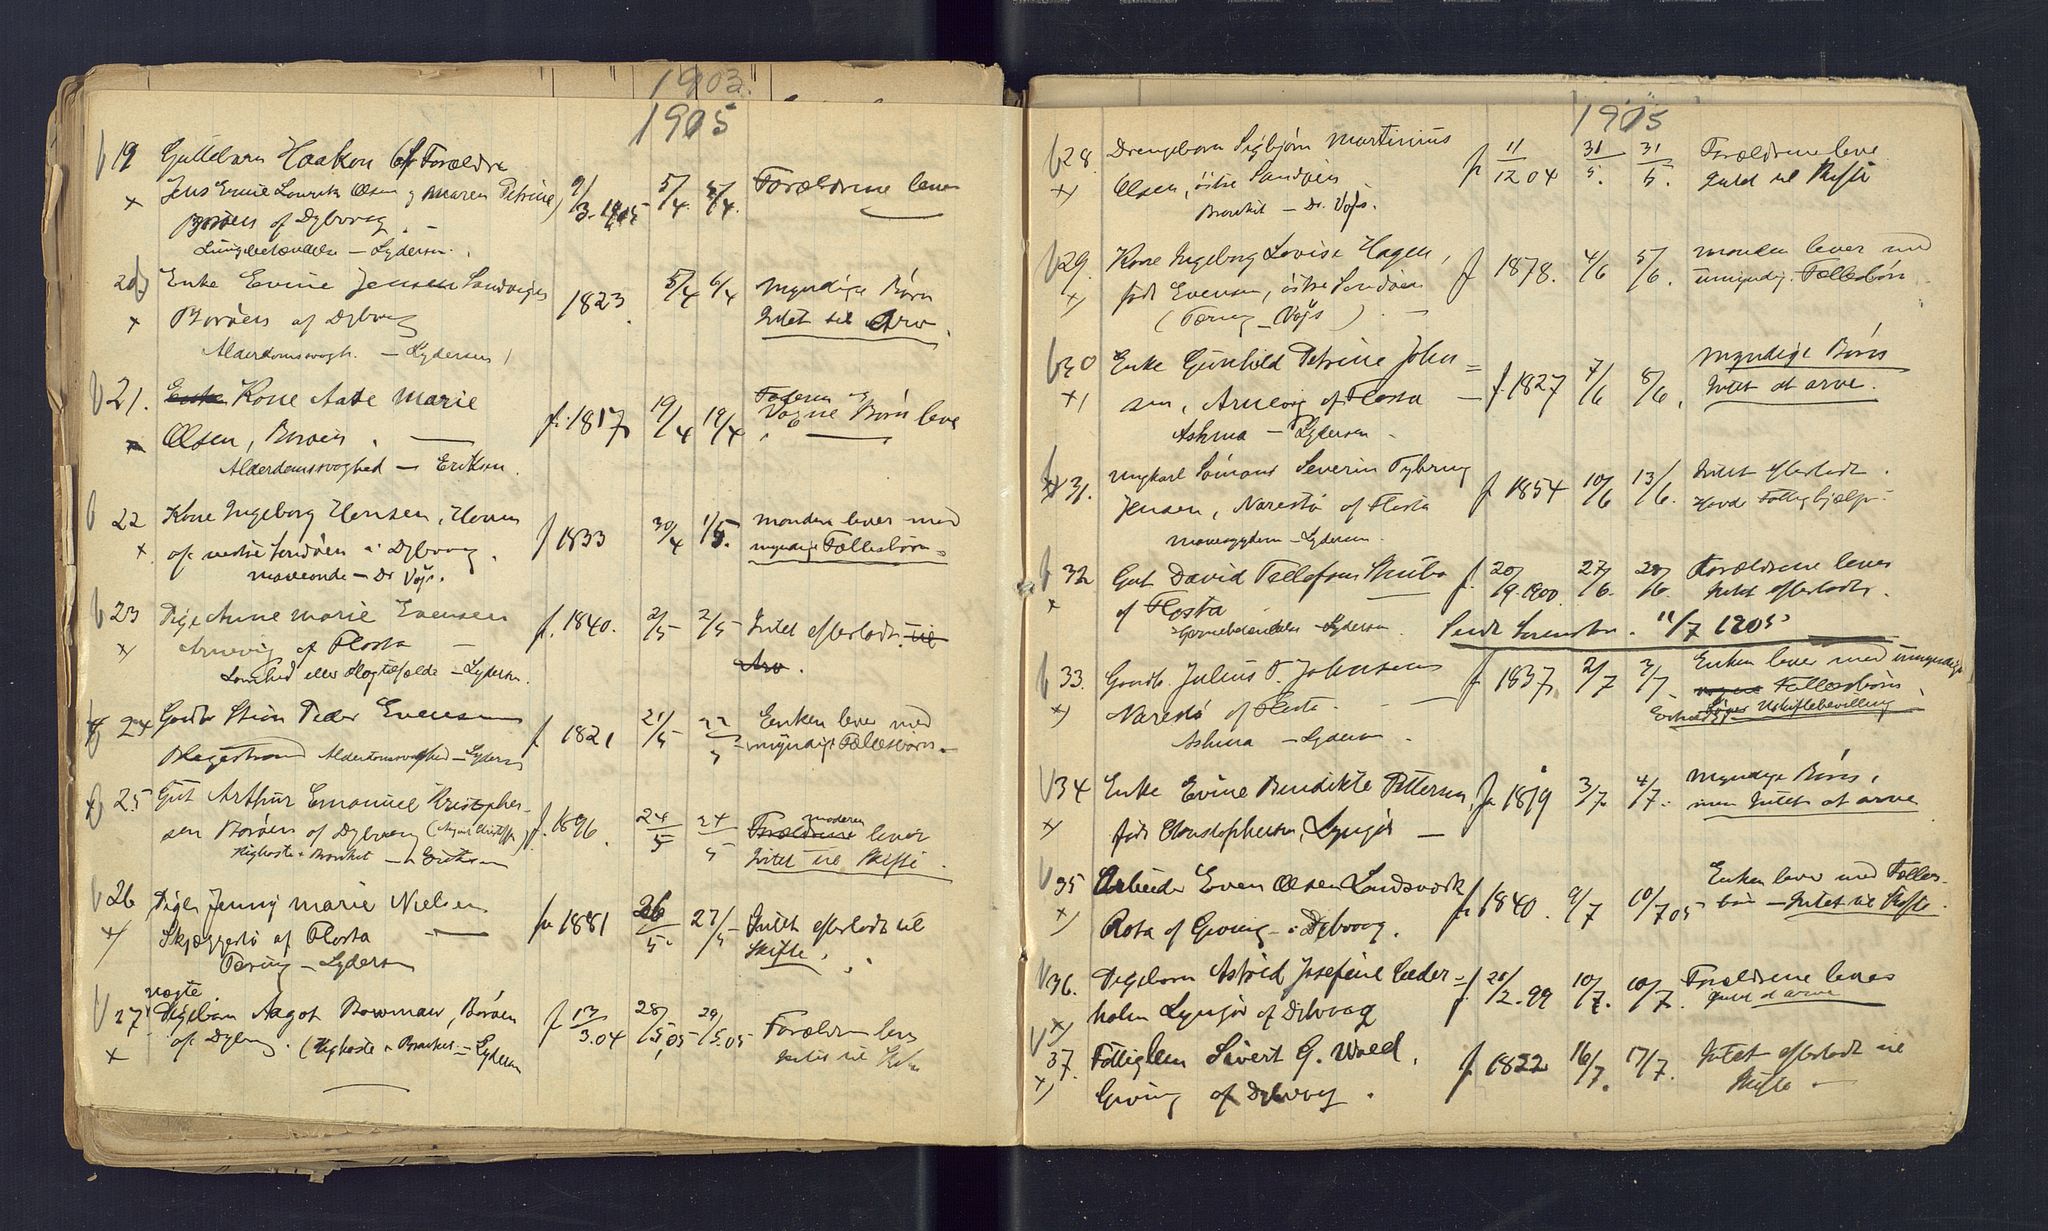 1903
1905
19 Guttebarn Haakon (af Forældre
x Jens Emil Olsen og Maren Petrine) 9/3-1905 5/4 5/4. Forældrene lever
Borøen af Dybvaag
Lungebetændelse – Lydersen.
20 Enke Evine Jensen Sandvigen 1823 5/4 6/4 Myndige Børn
x Borøen af Dybvaag Intet til Arv.
Alderdomssvagh. – Lydersen
21. Enke Kone Aase Marie f. 1817 19/4 19/4 Faderen og
Vogne Børn lever
x Olsen, Borøen.
Alderdomssvaghed – Eriksen.
22 Kone Ingeborg Hansen, Hoven f 1833 30/4 1/5. Manden lever med
x af vestre Sandøen i Dybvaag. myndige Fællesbørn.
Maveonde – Dr Vogs.
23 Pige Anne Marie Evensen f. 1840. 2/5 2/5 Intet efterladt til
x Arnevig af Flosta Arv.
eller Slagtilfælde – Lydersen
24 Gaardbr Stian Peder Evensen f 1821 21/5 22/5 Enken lever med
Hagestrand Alderdomssvaghed – Lydersen myndige Fællesbørn.
25 Gut Arthur Emanuel Kristopher-
sen Borøen af Dybvaag f. 1896. 24/5 24/5 Forældrene moderen lever
Kighoste & Bronkit – Eriksen Intet til Skifte.
26 Pige Jenny Marie Nielsen f. 1881 26/5. 27/5 Intet efterladt til
x Skjæggestø af Flosta – Skifte.
Tæring – Lydersen
27 uægte Pigebarn Aagot Bowman, Borøen f 13/3.04 28/5.05 29/5.05 Forældren lever
x af Dybvaag. (Kighoste & Bronkit – Lydersen Intet til
1905
28. Drengebarn Sigbjørn Martinius f 11/12 04 31/5. 31/5. Forældrene leve
x Olsen, østre Sandøen Intet til Skifte
Bronkit – Dr. Vogs.
29. Kone Ingeborg Lovise Hagen, f 1878. 4/6 5/6. Manden lever med
x født Evensen, østre Sandøen umyndig. Fællesbørn
(Tæring – Vogs)
30 Enke Gunhild Petrine John= f. 1827 7/6 8/6. Myndige Børn
x sen, Arnevig af Flosta – Intet at arve.
Asthma – Lydersen.
31. Ungkarl Sømand Severin Tybring f 1854 10/6 13/6. Intet efterladt.
Jensen, Narestø af Flosta Havde Fattighjælp.
– Lydersen
32 Gut David Tellefsen f. 20/9.1900. 27/6. 28/6. Forældrene lever
x af Flosta Intet efterladt.
– Lydersen. Sendt 11/7 1905
33. Gaardb. Julius T. Johnsen f 1837 2/7 3/7. Enken lever med umyndige
x Narestø af Flosta. Fællesbørn
Uskiftebevilling
Asthma – Lydersen.
34 Enke Evine Bendikte Pettersen, f. 1819 3/7. 4/7. Myndige Børn,
x født Christophersen, Lyngør – men Intet at arve
35 Arbeider Even Olsen Landsverk f. 1840. 9/7 10/7 05 Enken lever med Fælles-
x Rota af Gjeving i Dybvaag. børn – Intet til Skifte.
36. Pigebarn Astrid Josefine Ceder= f. 20/2.99 10/7. 10/7. Forældrene lever
x holm Lyngør af Dybvaag Intet at arve
37. Fattiglem Sivert G. Wold. f 1822 16/7. 17/7. Intet efterladt til
x Gjeving af Dybvaag. Skifte –